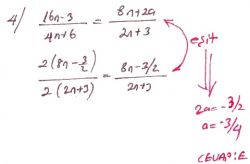 4) (16n-3)/(4n+6) = (8n+2a)/(2n+3)
eşit
2(8n-3/2)/2(2n+3) = (8n-3/2)/(2n+3)
2a=-3/2
a=-3/4
CEVAP:E